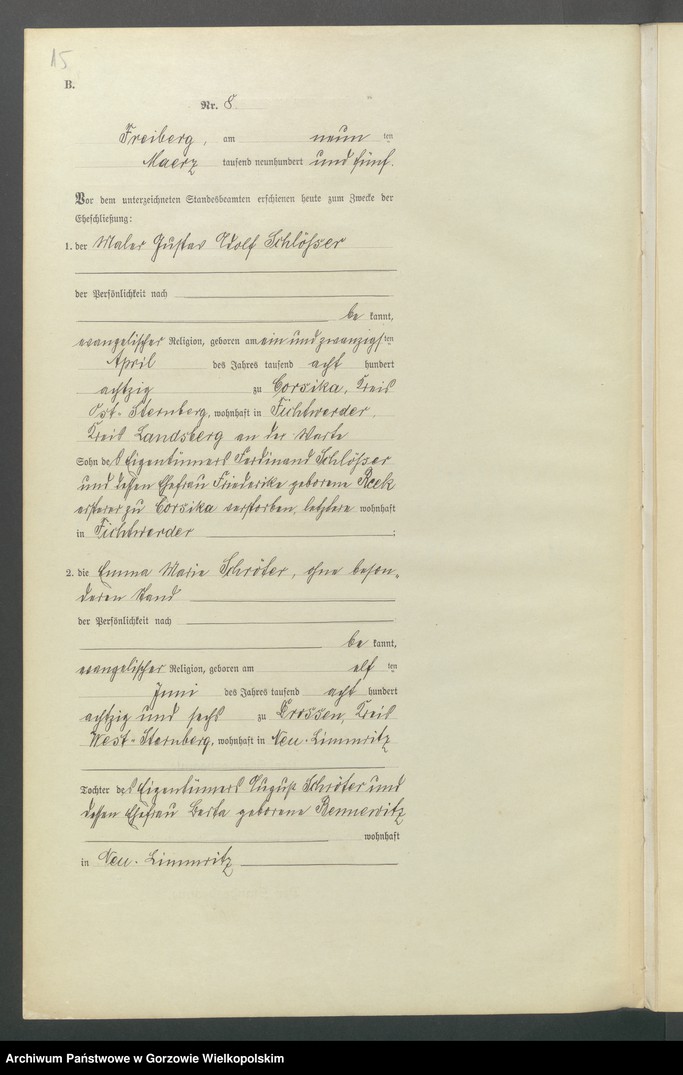 15
B.
Nr. 8
Freiberg, am neun ten
Maerz tausend neunhundert und fünf.
Vor dem unterzeichneten Standesbeamten erschienen heute zum Zwecke der
Eheschließung:
1. der Maler Gustav Adolf Schlösser
der Persönlichkeit nach
be kannt,
evangelischer Religion, geboren am ein und zwanzigsten
April des Jahres tausend acht hundert
achtzig zu Corsika, Kreis
Ost-Sternberg, wohnhaft in Fichtwerder,
Kreis Landsberg an der Warte
Sohn des Eigentümers Ferdinand Schlösser
und dessen Ehefrau Friederike geborene Reek
ersterer zu Corsika verstorben, letztere wohnhaft
in Fichtwerder ;
2. die Emma Marie Schröter, ohne beson-
deren Stand
der Persönlichkeit nach
be kannt,
evangelischer Religion, geboren am elf ten
Juni des Jahres tausend acht hundert
achtzig und sechs zu Crossen, Kreis
West-Sternberg, wohnhaft in Neu-Limmritz
Tochter des Eigentümers August Schröter und
dessen Ehefrau Berta geborene Rennewitz
wohnhaft
in Neu-Limmritz
Archiwum Państwowe w Gorzowie Wielkopolskim